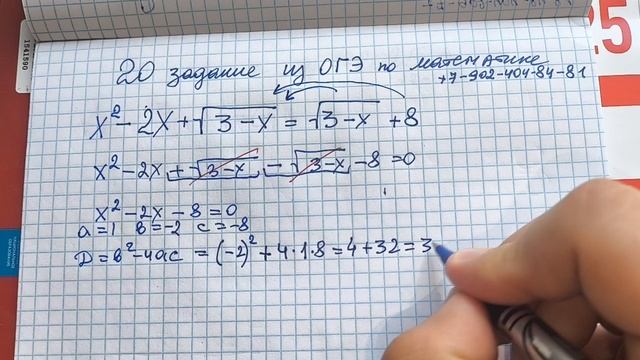 20 задание из ОГЭ по математике
+7-902-404-84-81
x² - 2x + √3-x = √3-x + 8
x² - 2x + √3-x - √3-x - 8 = 0
x² - 2x - 8 = 0
a = 1 b = -2 c = -8
D = b² - 4ac = (-2)² + 4·1·8 = 4 + 32 = 3
1541590
25